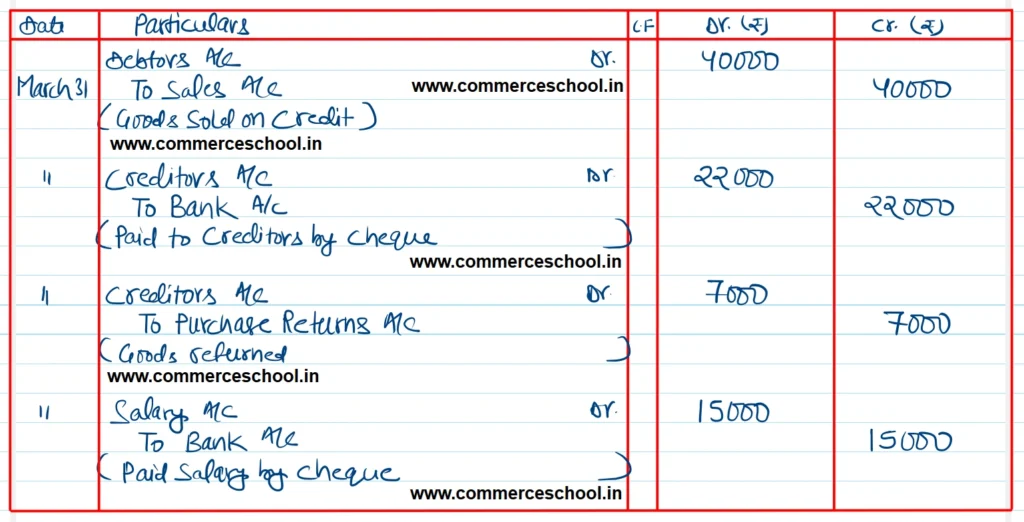 Date Particulars L.F Dr. (₹) Cr. (₹)
Debtors A/c Dr. 40000
March 31 To Sales A/c www.commerceschool.in 40000
(Goods Sold on Credit)
www.commerceschool.in
" Creditors A/c Dr. 22000
To Bank A/c 22000
(Paid to Creditors by cheque)
www.commerceschool.in
" Creditors A/c Dr. 7000
To Purchase Returns A/c 7000
(Goods returned)
www.commerceschool.in
" Salary A/c Dr. 15000
To Bank A/c 15000
(Paid Salary by cheque)
www.commerceschool.in